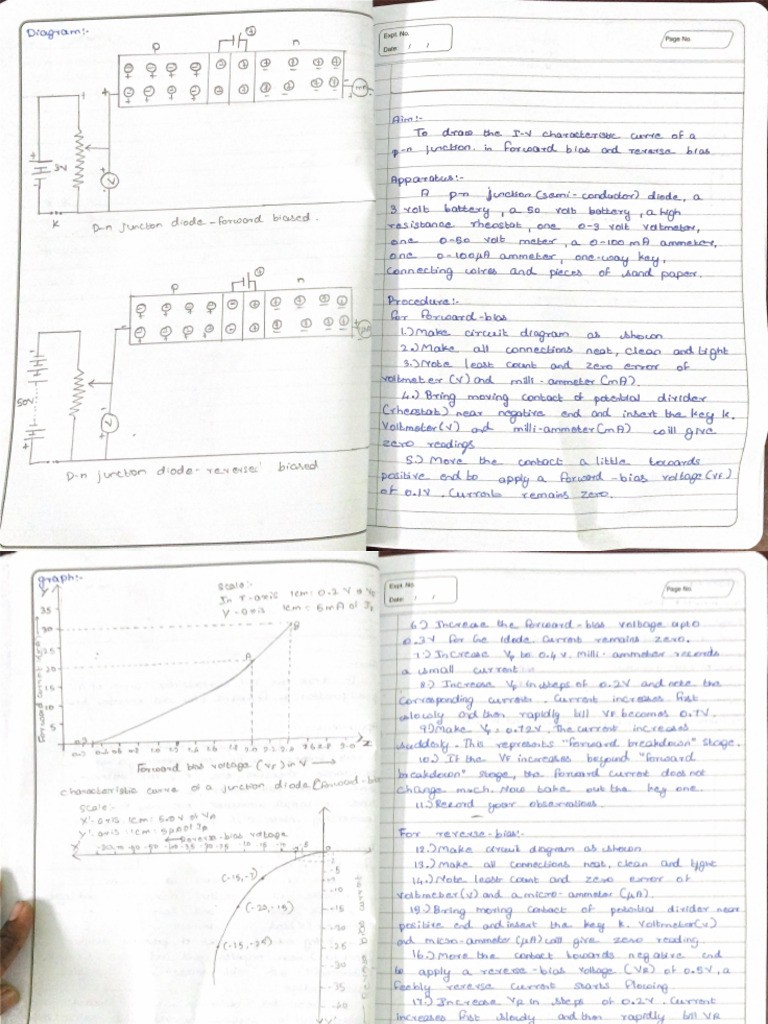 Diagram:-
p
n
3V
K
V
mA
p-n junction diode-forward biased.
p
n
50V
V
p-n junction diode-reverse biased
Expt. No.
Date: / /
Page No.
Aim:-
To draw the I-V characteristic curve of a
p-n junction in forward bias and reverse bias.
Apparatus:-
A p-n junction (semi-conductor) diode, a
3 volt battery, a 50 volt battery, a high
resistance rheostat, one 0-3 volt voltmeter,
one 0-50 volt meter, a 0-100 mA ammeter,
one 0-100µA ammeter, one-way key,
connecting wires and pieces of sand paper.
Procedure:-
For forward-bias
1.) Make circuit diagram as shown
2.) Make all connections neat, clean and tight
3.) Note least count and zero error of
voltmeter (V) and milli-ammeter (mA).
4.) Bring moving contact of potential divider
(rheostat) near negative end and insert the key K.
Voltmeter (V) and milli-ammeter (mA) will give
zero readings
5.) Move the contact a little towards
positive end to apply a forward-bias voltage (VF)
of 0.1V. Currents remains zero.
graph:-
Scale:-
In x-axis 1cm: 0.2 V of VF
Y-axis 1cm = 5mA of IF
Y
35
30
25
20
15
10
5
A
B
X
Forward bias voltage (VF) in V
characteristic curve of a junction diode
Scale:-
X'-axis 1cm: 5.0V of VR
Y'-axis : 1cm: 5µA of IR
Reverse-bias voltage
X'
(-15,-7)
(-20,-15)
(-25,-25)
-5
-10
-15
-20
-25
-30
-35
Expt. No.
Date: / /
Page No.
6.) Increase the forward-bias voltage upto
0.3V for Ge idode. Current remains zero.
7.) Increase VF to 0.4 V. Milli-ammeter records
a small current
8.) Increase VF in steps of 0.2V and note the
corresponding current. Current increases first
slowly and then rapidly till VF becomes 0.7V.
9.) Make VF = 0.72V. The current increases
suddenly. This represents "forward breakdown" stage.
10.) If the VF increases beyond "forward
breakdown" stage, the forward current does not
change much. Now take out the key one.
11.) Record your observations.
For reverse-bias:-
12.) Make circuit diagram as shown
13.) Make all connections neat, clean and
14.) Note least count and zero error of
voltmeter (V) and a micro-ammeter (µA).
15.) Bring moving contact of potential divider near
positive end and insert the key K. Voltmeter (V)
and micro-ammeter (µA) will give zero reading.
16.) Move the contact towards negative end
to apply a reverse-bias voltage (VR) of 0.5V, a
feebly reverse current starts flowing.
17.) Increase VR in steps of 0.2V. Current
increases first slowly and then rapidly till VR